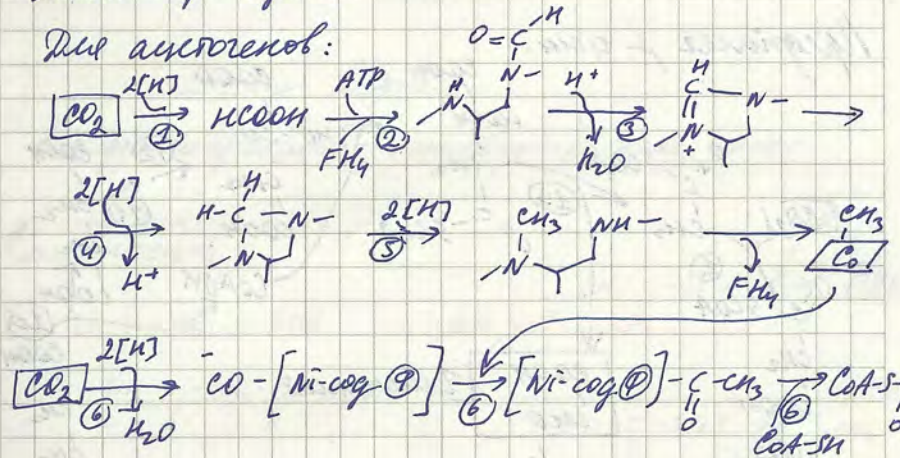 Для ацетогенов:
CO₂ 2[H] → ① HCOOH ATP → FH₄ ② H N O=C H N H⁺ → H₂O ③ H C N N + →
2[H] → ④ H⁺ H H-C N N 2[H] → ⑤ CH₃ N NH → FH₄ CH₃ Co
CO₂ 2[H] → ⑥ H₂O CO-[Ni-соф Ⓟ] → ⑥ [Ni-соф Ⓟ]-C-CH₃ O → ⑥ CoA-SH CoA-S- O